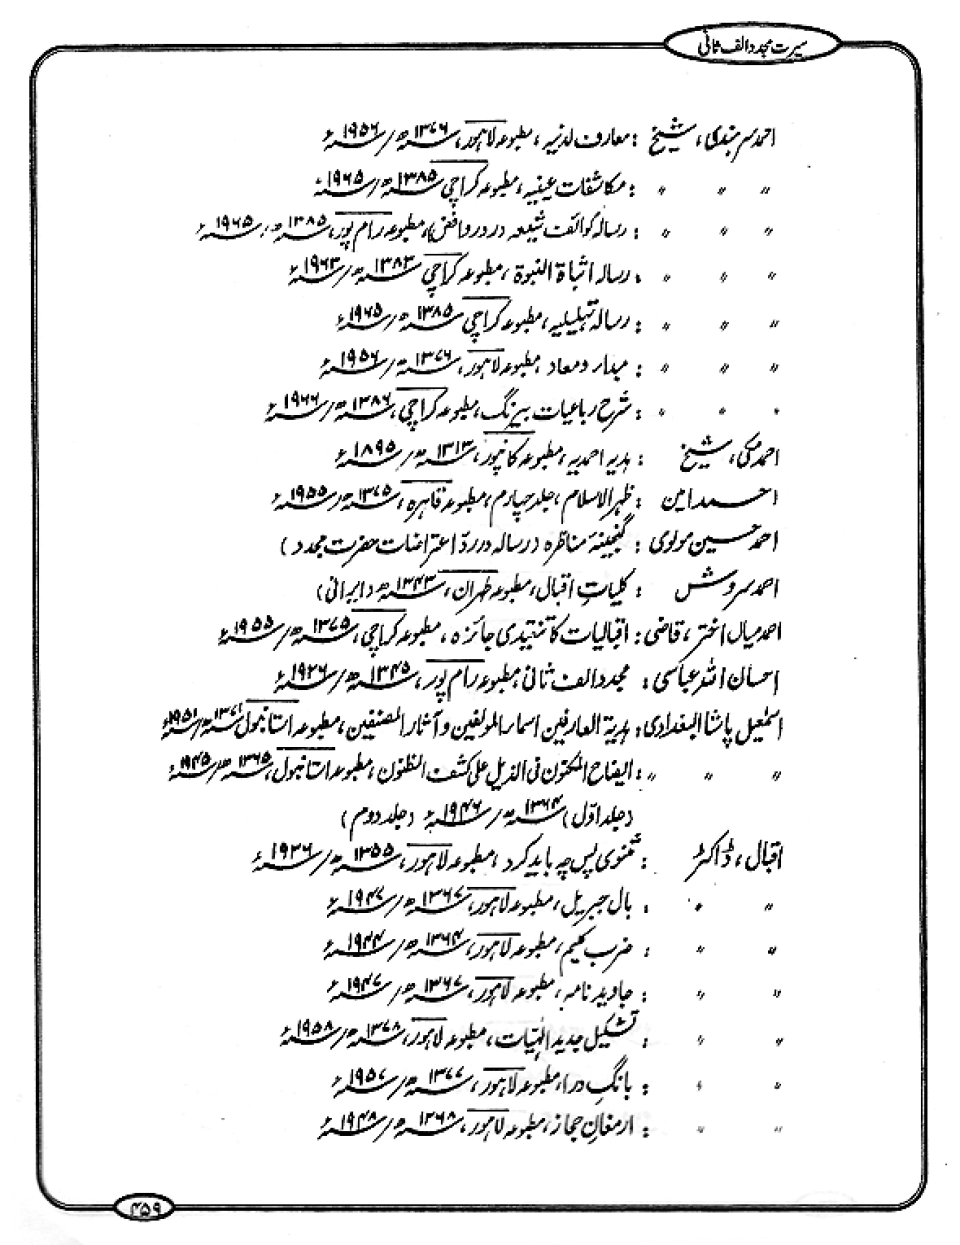 سیرت مجدد الف ثانی
احمد سرہندی، شیخ : معارف لدنیہ، مطبوعہ لاہور، ۱۳۷۶ھ/۱۹۵۶ء
〃 〃 〃 : مکاشفات عینیہ، مطبوعہ کراچی ۱۳۸۵ھ/۱۹۶۵ء
〃 〃 〃 : رسالہ کوائف شیعہ در رد روافض کا، مطبوعہ رام پور، ۱۳۸۵ھ/۱۹۶۵ء
〃 〃 〃 : رسالہ اثباۃ النبوۃ، مطبوعہ کراچی ۱۳۸۳ھ/۱۹۶۳ء
〃 〃 〃 : رسالہ تہلیلیہ، مطبوعہ کراچی ۱۳۸۵ھ/۱۹۶۵ء
〃 〃 〃 : مبدار و معاد، مطبوعہ لاہور، ۱۳۷۶ھ/۱۹۵۶ء
〃 〃 〃 : شرح رباعیات بیرنگ، مطبوعہ کراچی، ۱۳۸۶ھ/۱۹۶۶ء
احمد مکی، شیخ : ہدیہ احمدیہ، مطبوعہ کانپور، ۱۳۱۳ھ/۱۸۹۵ء
احمد امین : ظہر الاسلام، جلد چہارم، مطبوعہ قاہرہ، ۱۳۷۵ھ/۱۹۵۵ء
احمد حسین مولوی : گنجینۂ مناظرہ (رسالہ در ردّ اعتراضات حضرت مجدد)
احمد سروش : کلیاتِ اقبال، مطبوعہ طہران، ۱۳۴۳ھ (ایرانی)
احمد میاں اختر، قاضی : اقبالیات کا تنقیدی جائزہ، مطبوعہ کراچی، ۱۳۷۵ھ/۱۹۵۵ء
احسان اللہ عباسی : مجدد الف ثانی، مطبوعہ رام پور، ۱۳۴۵ھ/۱۹۲۶ء
اسمٰعیل پاشا البغدادی : ہدیۃ العارفین اسمار المولفین و آثار المصنفین، مطبوعہ استانبول ۱۳۷۱ھ/۱۹۵۱ء
〃 〃 〃 : ایضاح المکنون فی الذیل علی کشف الظنون، مطبوعہ استانبول، ۱۳۶۵ھ/۱۹۴۵ء
(جلد اوّل) ۱۳۶۴ھ/۱۹۴۶ء (جلد دوم)
اقبال، ڈاکٹر : مثنوی پس چہ باید کرد، مطبوعہ لاہور، ۱۳۵۵ھ/۱۹۳۶ء
〃 〃 : بال جبریل، مطبوعہ لاہور، ۱۳۶۷ھ/۱۹۴۷ء
〃 〃 : ضرب کلیم، مطبوعہ لاہور، ۱۳۶۴ھ/۱۹۴۴ء
〃 〃 : جاوید نامہ، مطبوعہ لاہور، ۱۳۶۷ھ/۱۹۴۷ء
〃 〃 : تشکیل جدید الٰہیات، مطبوعہ لاہور، ۱۳۷۸ھ/۱۹۵۸ء
〃 〃 : بانگِ درا، مطبوعہ لاہور، ۱۳۷۷ھ/۱۹۵۷ء
〃 〃 : ارمغانِ حجاز، مطبوعہ لاہور، ۱۳۶۸ھ/۱۹۴۸ء
۴۵۹